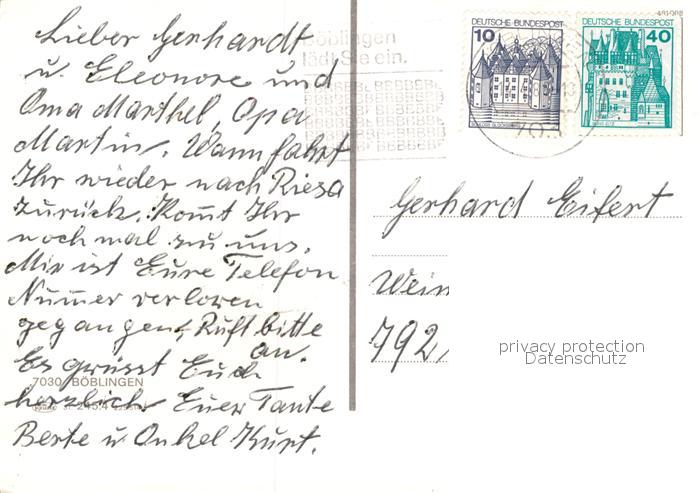 Lieber Gerhardt
u. Eleonore und
Oma Marthel, Opa
Martin. Wann fahrt
Ihr wieder nach Riesa
zurück. Komt Ihr
noch mal zu uns.
Mir ist Eure Telefon
Numer verloren
gegangen, Ruft bitte
an.
Es grüsst Euch
7030 BÖBLINGEN
herzlich Euer Tante
Berte u. Onkel Kurt.
Böblingen
lädt Sie ein.
DEUTSCHE BUNDESPOST
10
DEUTSCHE BUNDESPOST
40
703
Gerhard Eifert
Wein
792
privacy protection
Datenschutz